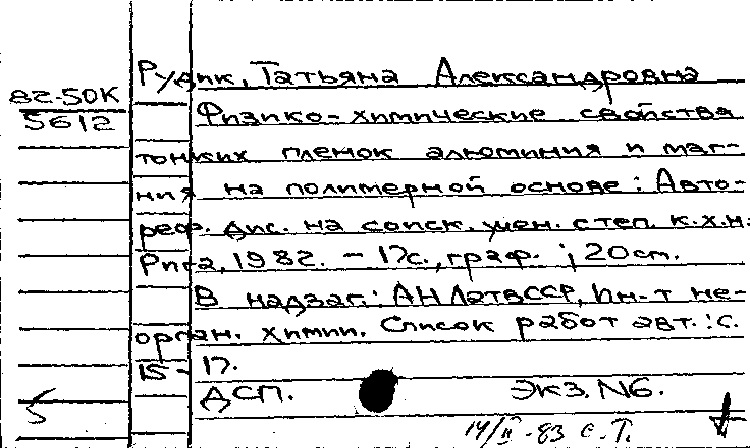 Рудик, Татьяна Александровна
82-50К
5612
Физико-химические свойства
тонких пленок алюминия и маг-
ния на полимерной основе: Авто-
реф. дис. на соиск. учен. степ. к.х.н.
Рига, 1982. - 17с., граф. ; 20 см.
В надзаг.: АН ЛатвССР, Ин-т не-
орган. химии. Список работ авт.: с.
15-17.
ДСП. Экз. №6.
14/II-83 с. Т.